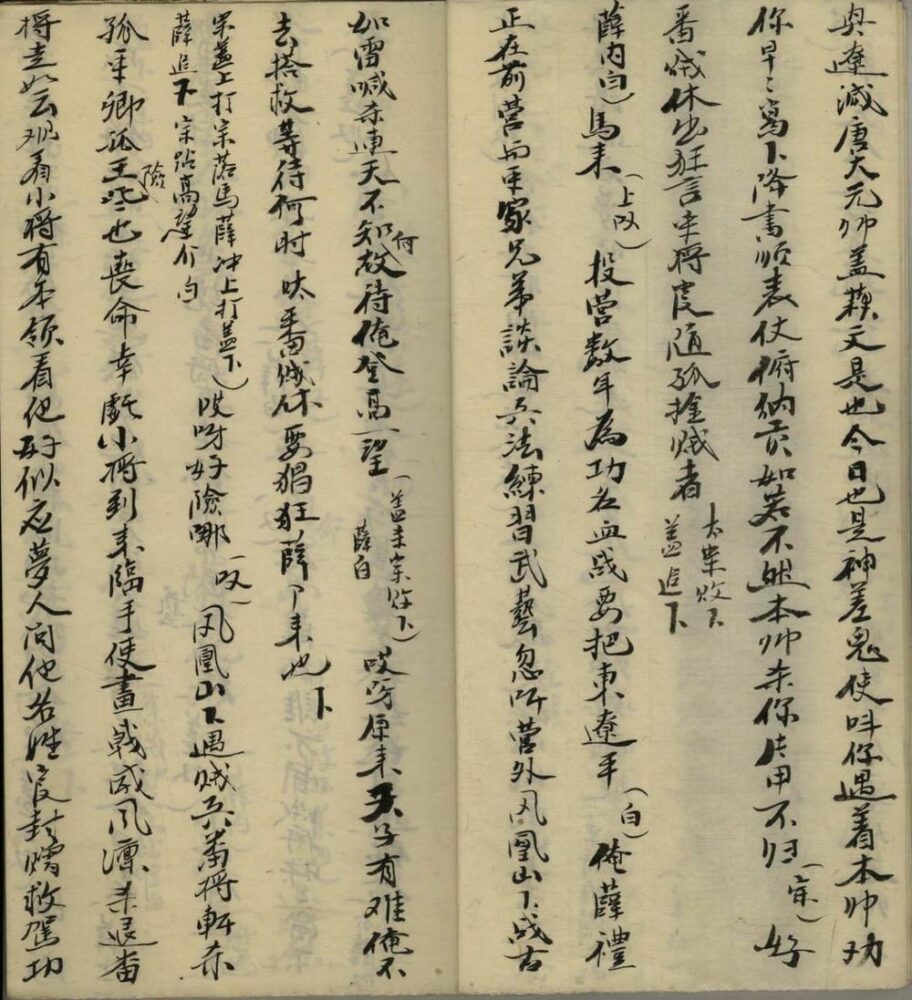 奥遼滅唐大元帅盖蘇文是也今日也是神差鬼使叫你遇着本帅功
你早〻寫下降書順表仗俯納贡如若不然本帅杀你片甲不归(宗)好
番贼休出狂言平將官随孤擒贼者 太宗败下 盖追下
薛内白)馬来(上㕛)投营数年為功名血战要把東遼平(白)俺薛禮
正在前营与平家兄弟談論兵法練習武藝忽听营外凤凰山下战古
如雷喊杀連天不知何故待俺登高一望(盖来宗败下)薛白 哎呀原来天子有难俺不
去搭救等待何时呔番贼休要猖狂薛 来也 下
宗盖上打宗落馬薛冲上打盖下)薛追下宗站高望介白 哎呀好險哪(㕛)凤凰山下遇贼兵番將軒杀
孤平卿孤王險些也喪命幸虧小將到来臨手使畫戟威风凛杀退番
將走如云观看小將有本领看他好似应夢人问他名姓官封赠救駕功